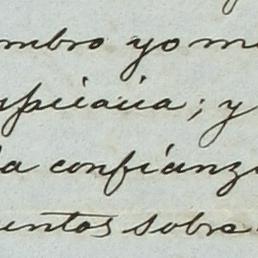 mbro yo m
spicacia; y
la confianz
entos sobre